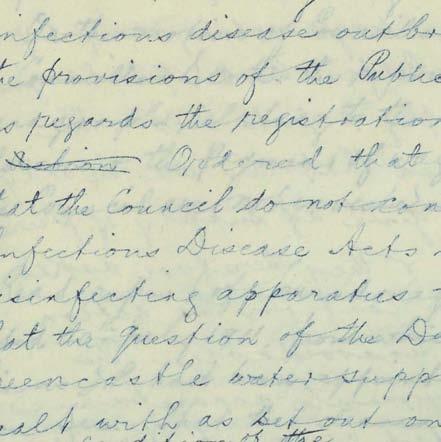 infectious disease outbr
the provisions of the Public
as regards the registration
Ordered that
that the Council do not con
Infectious Disease Acts
disinfecting apparatus -
that the question of the De
eencastle water supp
ealt with as set out on
condition of the